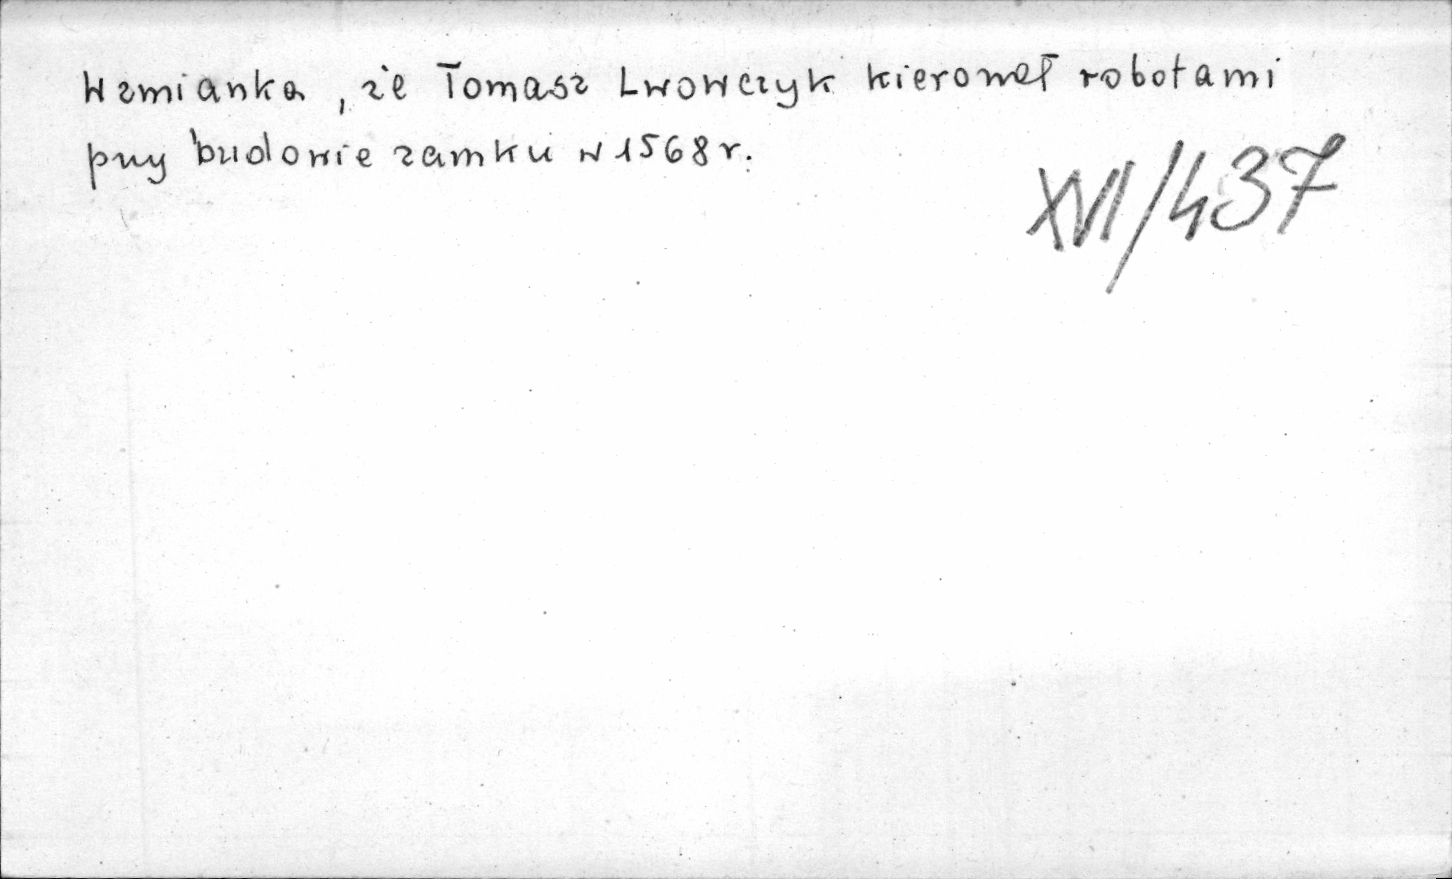 Wzmianka, że Tomasz Lwowczyk kierował robotami
przy budowie zamku w 1568 r.
XVI/437